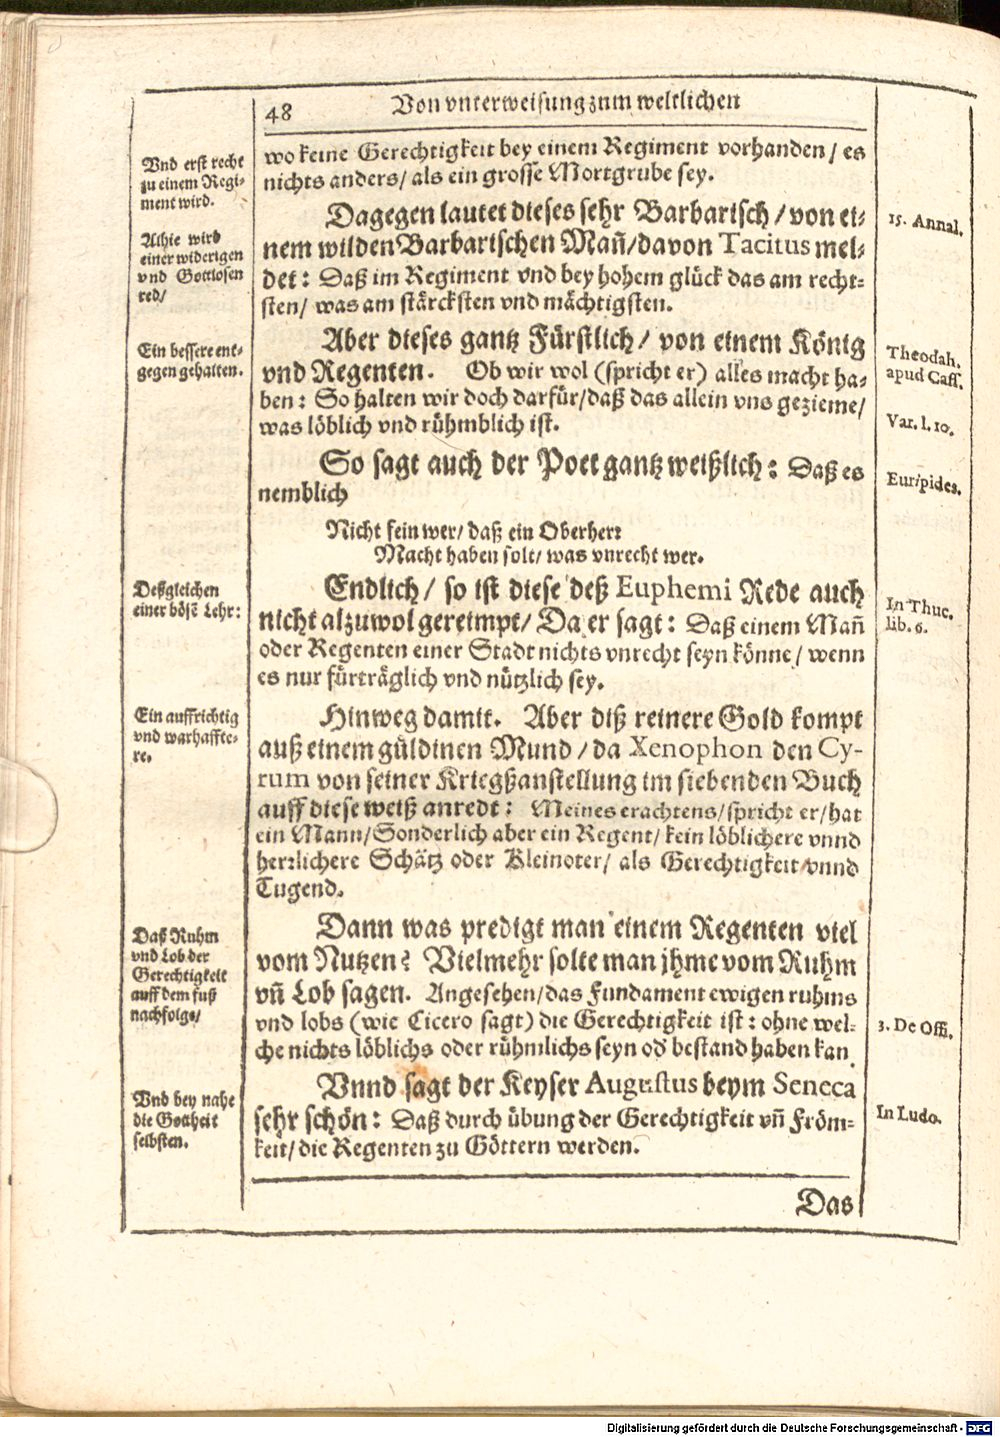 48
Von vnterweisung zum weltlichen
wo keine Gerechtigkeit bey einem Regiment vorhanden/ es
nichts anders/ als ein grosse Mortgrube sey.
Vnd erst recht
zu einem Regi-
ment wird.
Dagegen lautet dieses sehr Barbarisch/ von ei-
nem wilden Barbarischen Mañ/ davon Tacitus mel-
det: Daß im Regiment vnd bey hohem glück das am recht-
sten/ was am stärcksten vnd mächtigsten.
Alhie wird
einer widerigen
vnd Gottlosen
red/
15. Annal.
Aber dieses gantz Fürstlich/ von einem König
vnd Regenten. Ob wir wol (spricht er) alles macht ha-
ben: So halten wir doch darfür/ daß das allein vns gezieme/
was löblich vnd rühmblich ist.
Ein bessere ent-
gegen gehalten.
Theodah.
apud Cass.
Var. l. 10.
So sagt auch der Poet gantz weißlich: Daß es
nemblich
Euripides.
Nicht fein wer/ daß ein Oberherr
Macht haben solt/ was vnrecht wer.
Endlich/ so ist diese deß Euphemi Rede auch
nicht alzuwol gereimpt/ Da er sagt: Daß einem Mañ
oder Regenten einer Stadt nichts vnrecht seyn könne/ wenn
es nur fürträglich vnd nützlich sey.
Deßgleichen
einer bösē Lehr:
In Thuc.
lib. 6.
Hinweg damit. Aber diß reinere Gold kompt
auß einem güldinen Mund/ da Xenophon den Cy-
rum von seiner Kriegßanstellung im siebenden Buch
auff diese weiß anredt: Meines erachtens/ spricht er/ hat
ein Mann/ Sonderlich aber ein Regent/ kein löblichere vnnd
herrlichere Schätz oder Kleinoter/ als Gerechtigkeit vnnd
Tugend.
Ein auffrichtig
vnd warhaffte-
re.
Dann was predigt man einem Regenten viel
vom Nutzen? Vielmehr solte man jhme vom Ruhm
vñ Lob sagen. Angesehen/ das Fundament ewigen ruhms
vnd lobs (wie Cicero sagt) die Gerechtigkeit ist: ohne wel-
che nichts löblichs oder rühmlichs seyn od' bestand haben kan
Daß Ruhm
vnd Lob der
Gerechtigkeit
auff dem fuß
nachfolge/
3. De Offi.
Vnnd sagt der Keyser Augustus beym Seneca
sehr schön: Daß durch übung der Gerechtigkeit vñ Fröm-
keit/ die Regenten zu Göttern werden.
Vnd bey nahe
die Gottheit
selbsten.
In Ludo.
Das
Digitalisierung gefördert durch die Deutsche Forschungsgemeinschaft - DFG